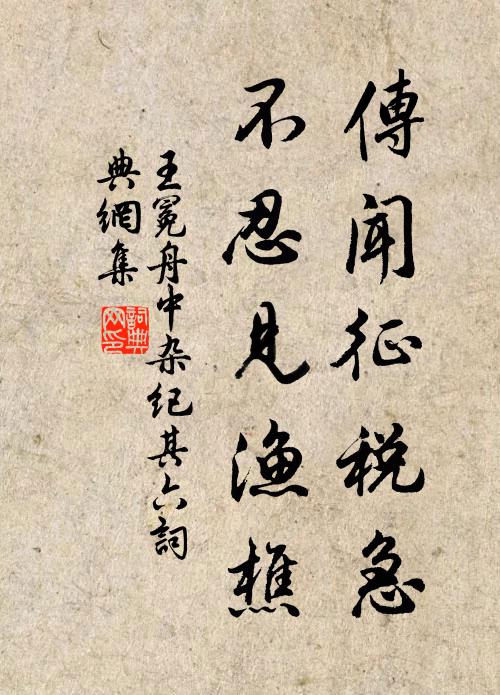 傳聞征税急
不忍見漁樵
王冕舟中杂纪其六詞
典網集
詞典
网印